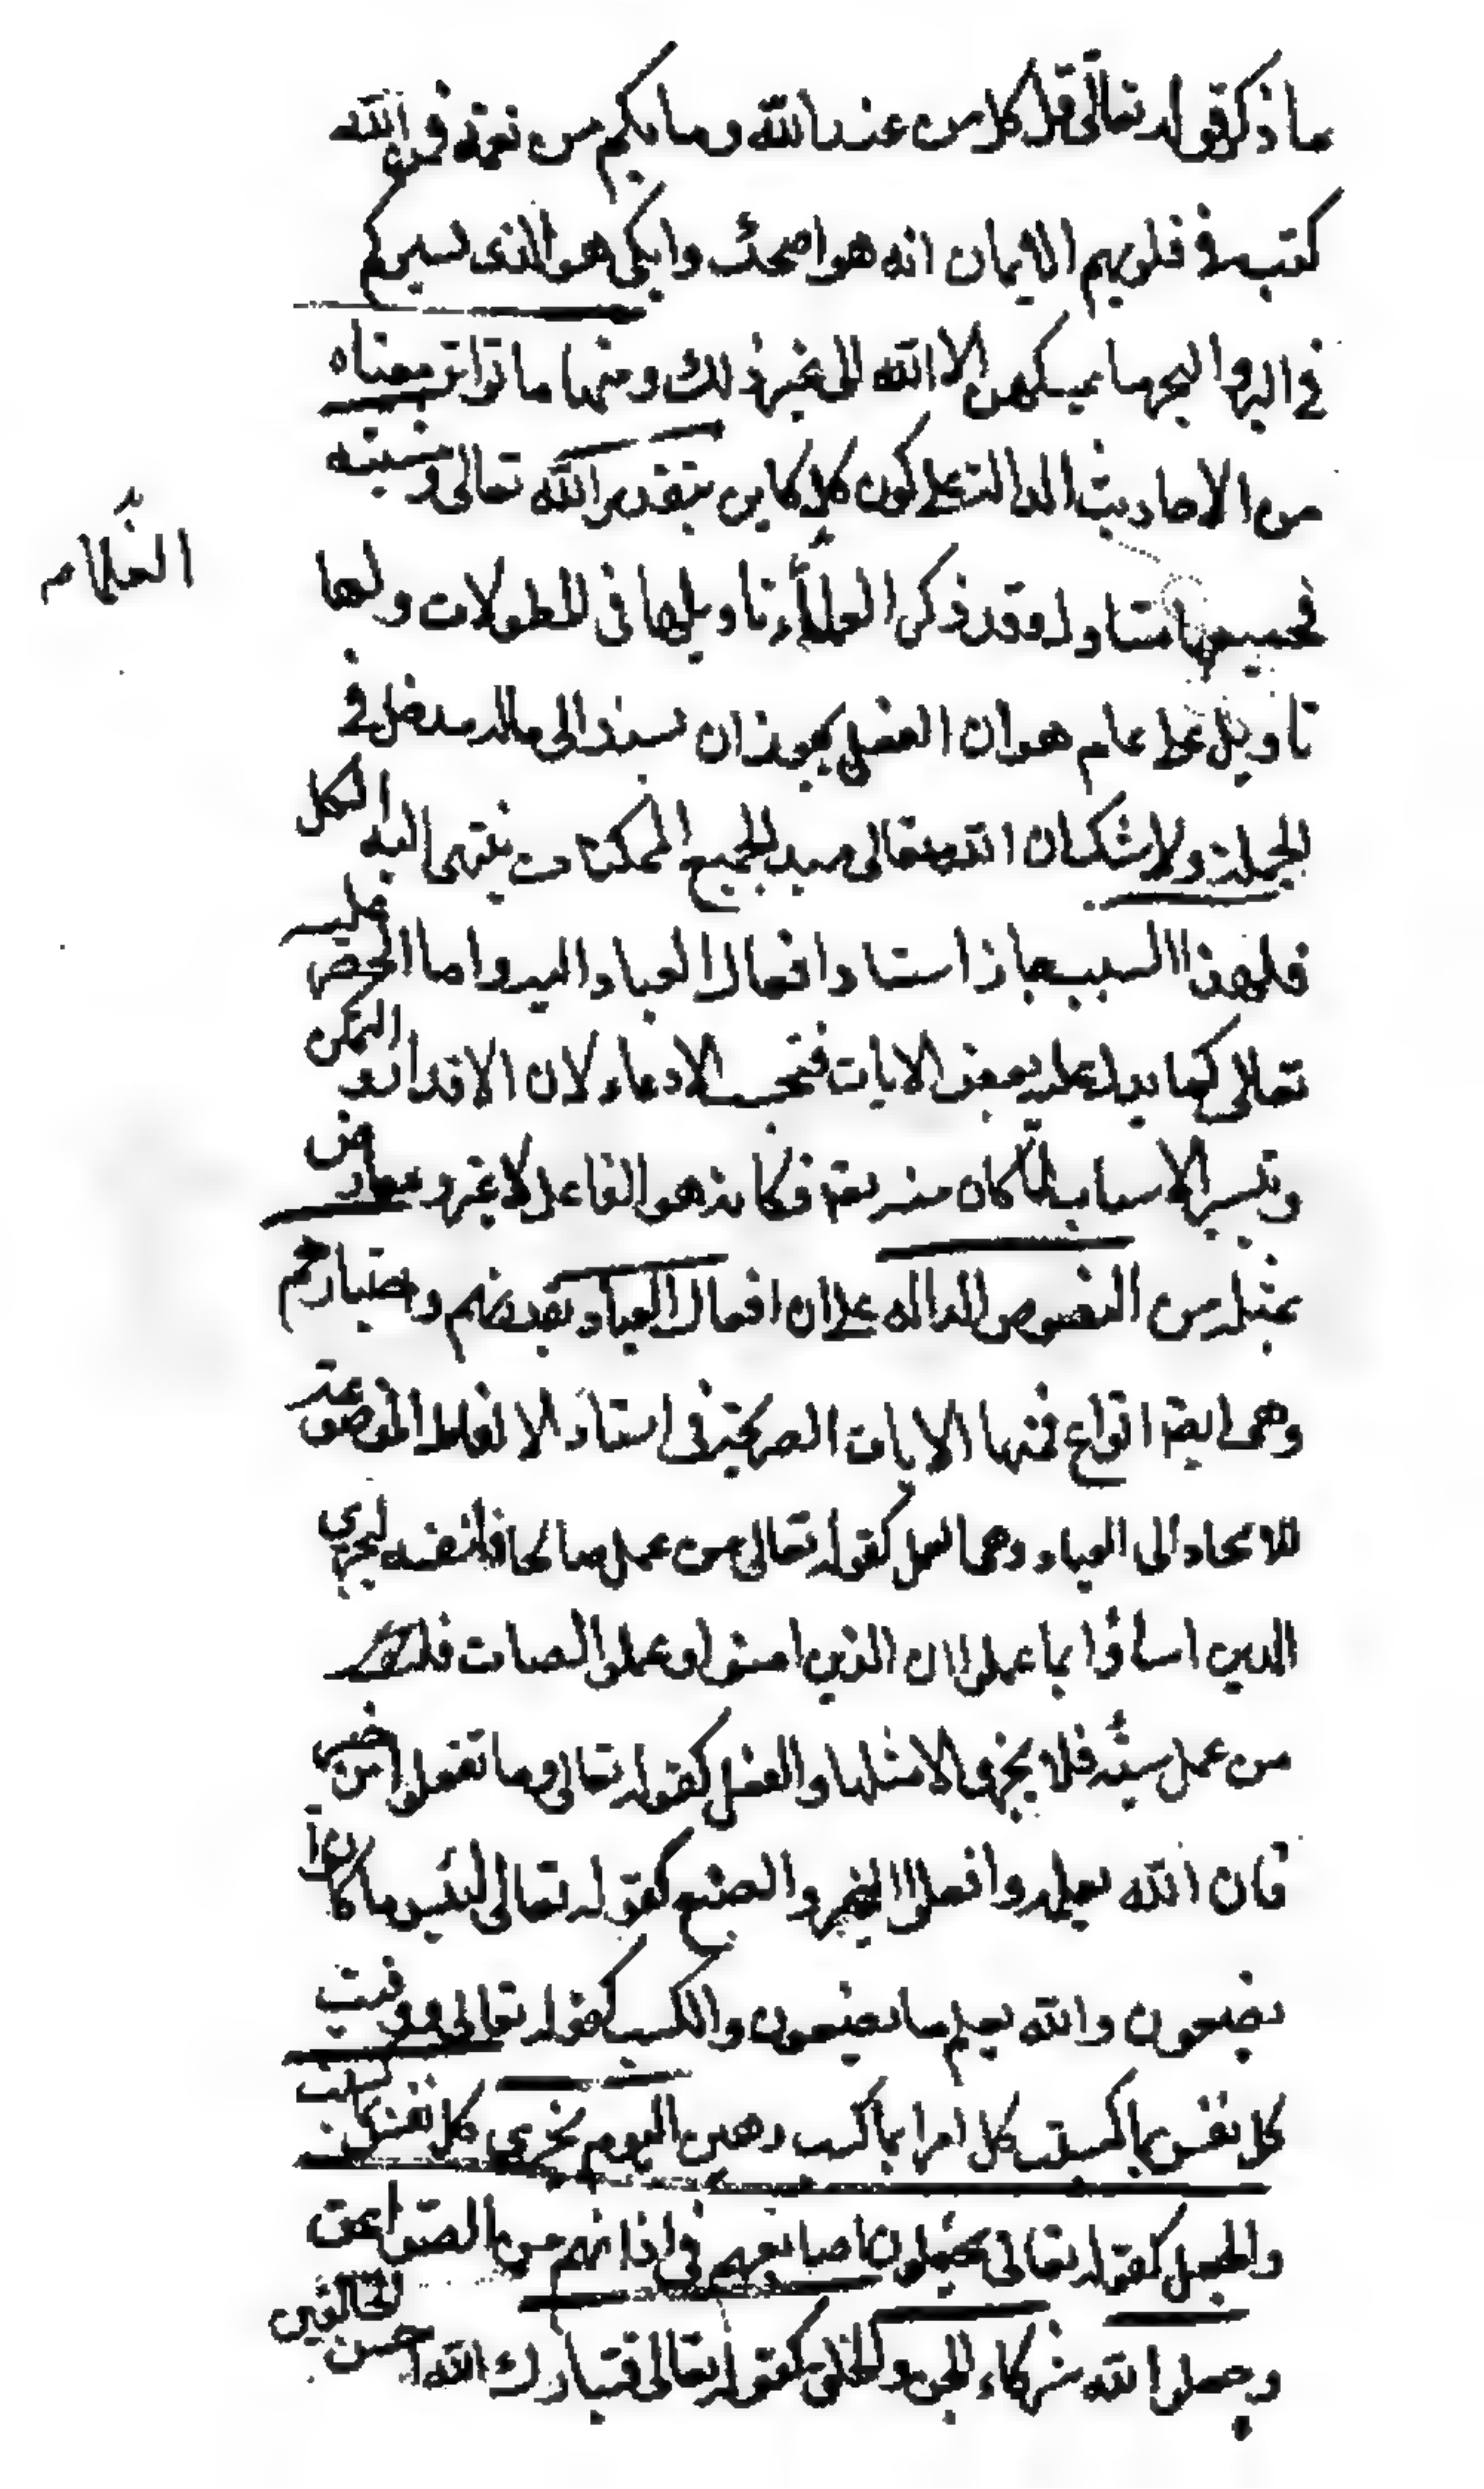 ما ذكر قوله تعالى قل كل من عند الله وما بكم من نعمة فمن الله
كتب في قلوبهم الايمان انه هو اضحك وابكى هو الذى يسيركم
في البر والبحر ما يمسكهن الا الله الى غير ذلك ومنها ما تواتر معناه
من الاحاديث الدالة على كون كل كاين بتقدير الله تعالى ومشيته
فجميعها متاوله وقد ذكر العلمآء تاويلها فى المطولات ولها
العُلماء
تاويل عام هو ان الفعل يجوز ان يسند الى ماله مدخل في
الجملة ولا شك ان الله تعالى مبدء لجميع الممكنات ينتهى اليه الكل
فلهذا السبب جاز اسناد افعال العباد اليه واما الحصر عليه
تعالى كما يدل عليه بعض الايات فبحسب الادعاء لان الاقدار والتمكن
وتيسير الاسباب لما كان منه تعه فكانه هو الفاعل لا غير ومعارض
بمثله من النصوص الداله على ان افعال العباد بقدرتهم واختيارهم
وهى ايضا انواع فمنها الايات الصريحة فى اسناد الالفاظ الموضوعة
للايجاد الى العباد وهى العمل كقوله تعالى من عمل صالحا فلنفسه ليجزى
الذين اساؤا بما عملوا ان الذين امنوا وعملوا الصات فلهم
من عمل سيئه فلا يجزى الا مثلها والفعل كقوله تعالى وما تفعلوا من خير
فان الله يعلمه وافعلوا الخير والصنع كقوله تعالى لبئس ما كانوا
يصنعون والله يعلم ما يصنعون والكسب كقوله تعالى ووفيت
كل نفس بما كسبت كل امرا بما كسب رهين اليوم تجزى كل نفس بما كسبت
والجعل كقوله تعالى يجعلون اصابعهم فى اذانهم من الصواعق
وجعلوا لله شركاء الجن والخلق كقوله تعالى فتبارك الله احسن الخالقين